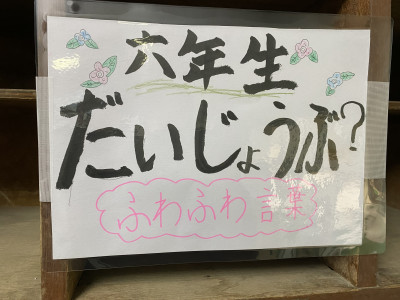 六年生
だいじょうぶ?
ふわふわ言葉